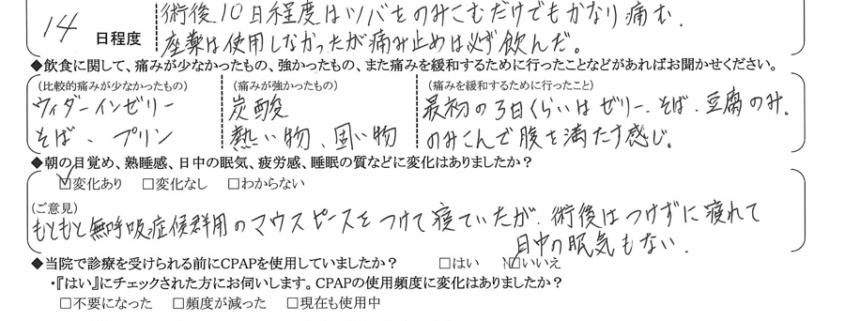 術後10日程度はツバをのみこむだけでもかなり痛む.
14 日程度
座薬は使用しなかったが痛み止めは必ず飲んだ。
◆飲食に関して、痛みが少なかったもの、強かったもの、また痛みを緩和するために行ったことなどがあればお聞かせください。
(比較的痛みが少なかったもの) (痛みが強かったもの) (痛みを緩和するために行ったこと)
ウィダーインゼリー 炭酸 最初の3日くらいはゼリー.そば.豆腐のみ.
そば、プリン 熱い物、固い物 のみこんで腹を満たす感じ。
◆朝の目覚め、熟睡感、日中の眠気、疲労感、睡眠の質などに変化はありましたか?
☑変化あり □変化なし □わからない
(ご意見)
もともと無呼吸症候群用のマウスピースをつけて寝ていたが、術後はつけずに寝れて
日中の眠気もない.
◆当院で診療を受けられる前にCPAPを使用していましたか? □はい ☑いいえ
・『はい』にチェックされた方にお伺いします。CPAPの使用頻度に変化はありましたか?
□不要になった □頻度が減った □現在も使用中